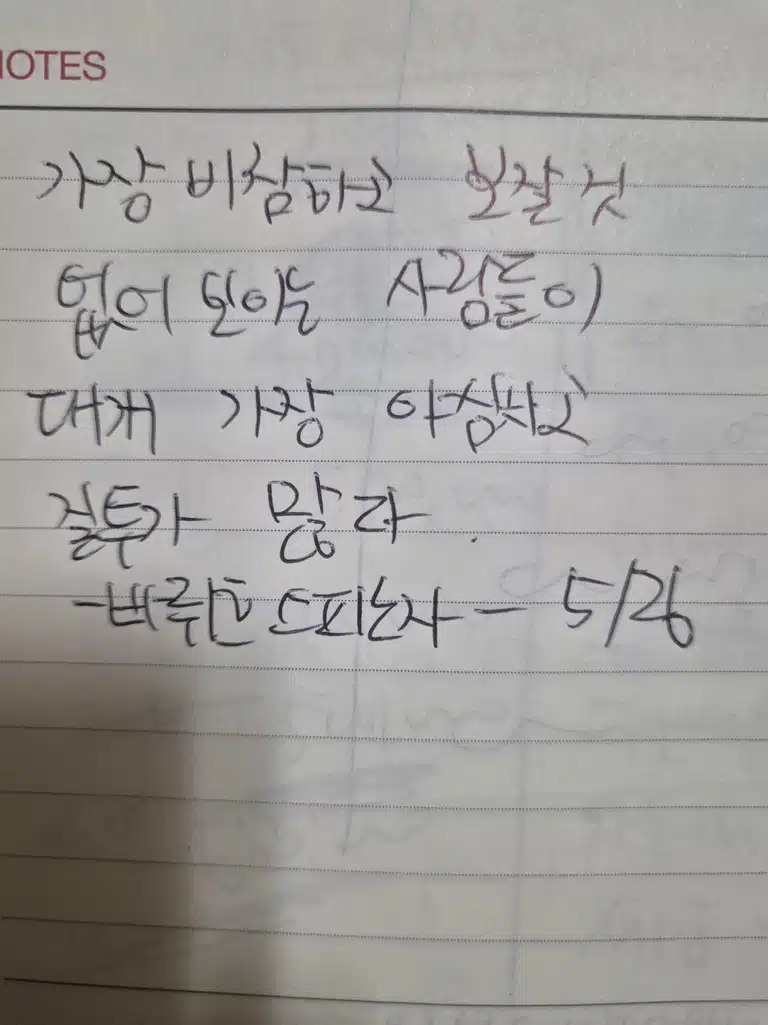 NOTES
가장 비참하고 보잘 것
없어 보이는 사람들이
대개 가장 야심차고
질투가 많다.
-바뤼흐 스피노자- 5/26